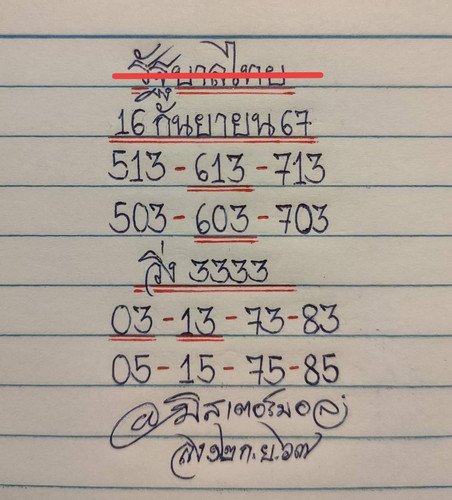 รัฐบาลไทย
16 กันยายน 67
513-613-713
503-603-703
วิ่ง 3333
03-13-73-83
05-15-75-85
@มิสเตอร์มอล
๑๒ ก.ย. ๖๗